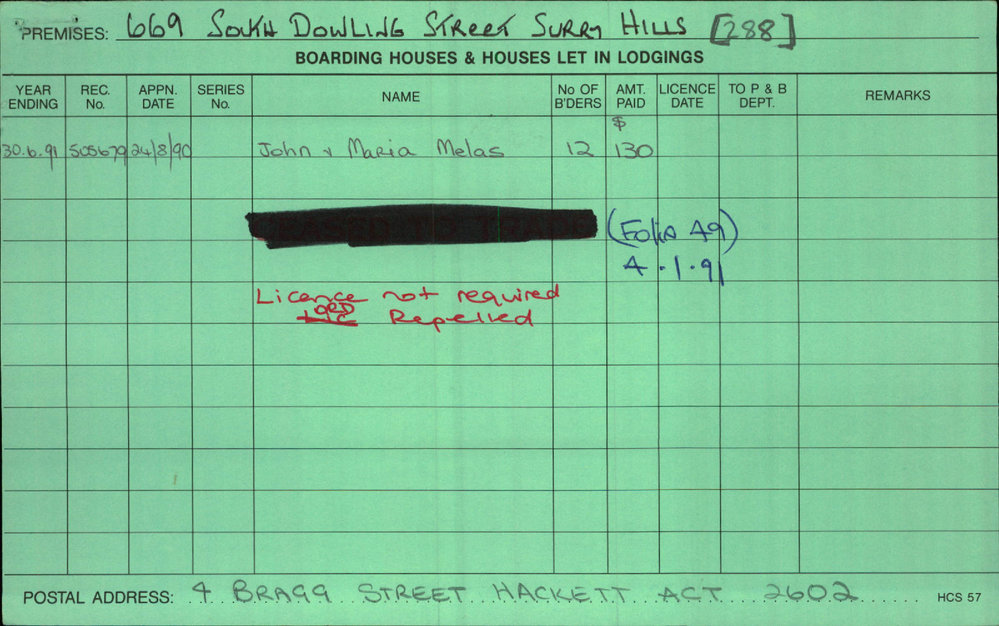 PREMISES: 669 South Dowling Street Surry Hills [288]
BOARDING HOUSES & HOUSES LET IN LODGINGS
YEAR ENDING REC. No. APPN. DATE SERIES No. NAME No OF B'DERS AMT. PAID LICENCE DATE TO P & B DEPT. REMARKS
$
30.6.91 505679 24/8/90 John + Maria Melas 12 130
(Folio 49)
4.1.91
Licence not required
ORD
Lic Repelled
POSTAL ADDRESS: 4 BRAGG STREET HACKETT ACT 2602 HCS 57